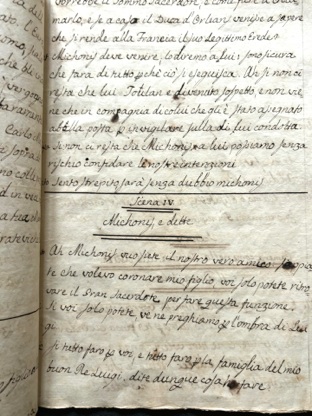 vorrebbe il sommo Sacerdote, e
marlo, e se a caso il Duca d'Orleans venisse a sapere
che si rende alla Francia il suo legittimo Erede
Michony deve venire, lo diremo a lui; sono sicura
che farà di tutto, perché ciò si eseguisca. Ah sì non ci
resta che lui. Toulan e divenuto sospetto, e non vie
ne che in compagnia di colui che gli è stato assegnato
apposta per invigilare sulla di lui condotta
si non ci resta che Michony, a lui possiamo senza
rischio confidare le nostre intenzioni
Sento strepito sarà senza dubbio michony
Scena IV
Michony, e dette
Ah Michony voi siete il nostro vero amico
te che volevo coronare mio figlio, voi solo potete ritro
vare il Gran Sacerdote, per fare questa funzione.
Si voi solo potete, ve ne preghiamo per l'ombra di Lui
gi
Si tutto farò per voi, e tutto farò per la famiglia del mio
buon Re Luigi, dite dunque cosa fare